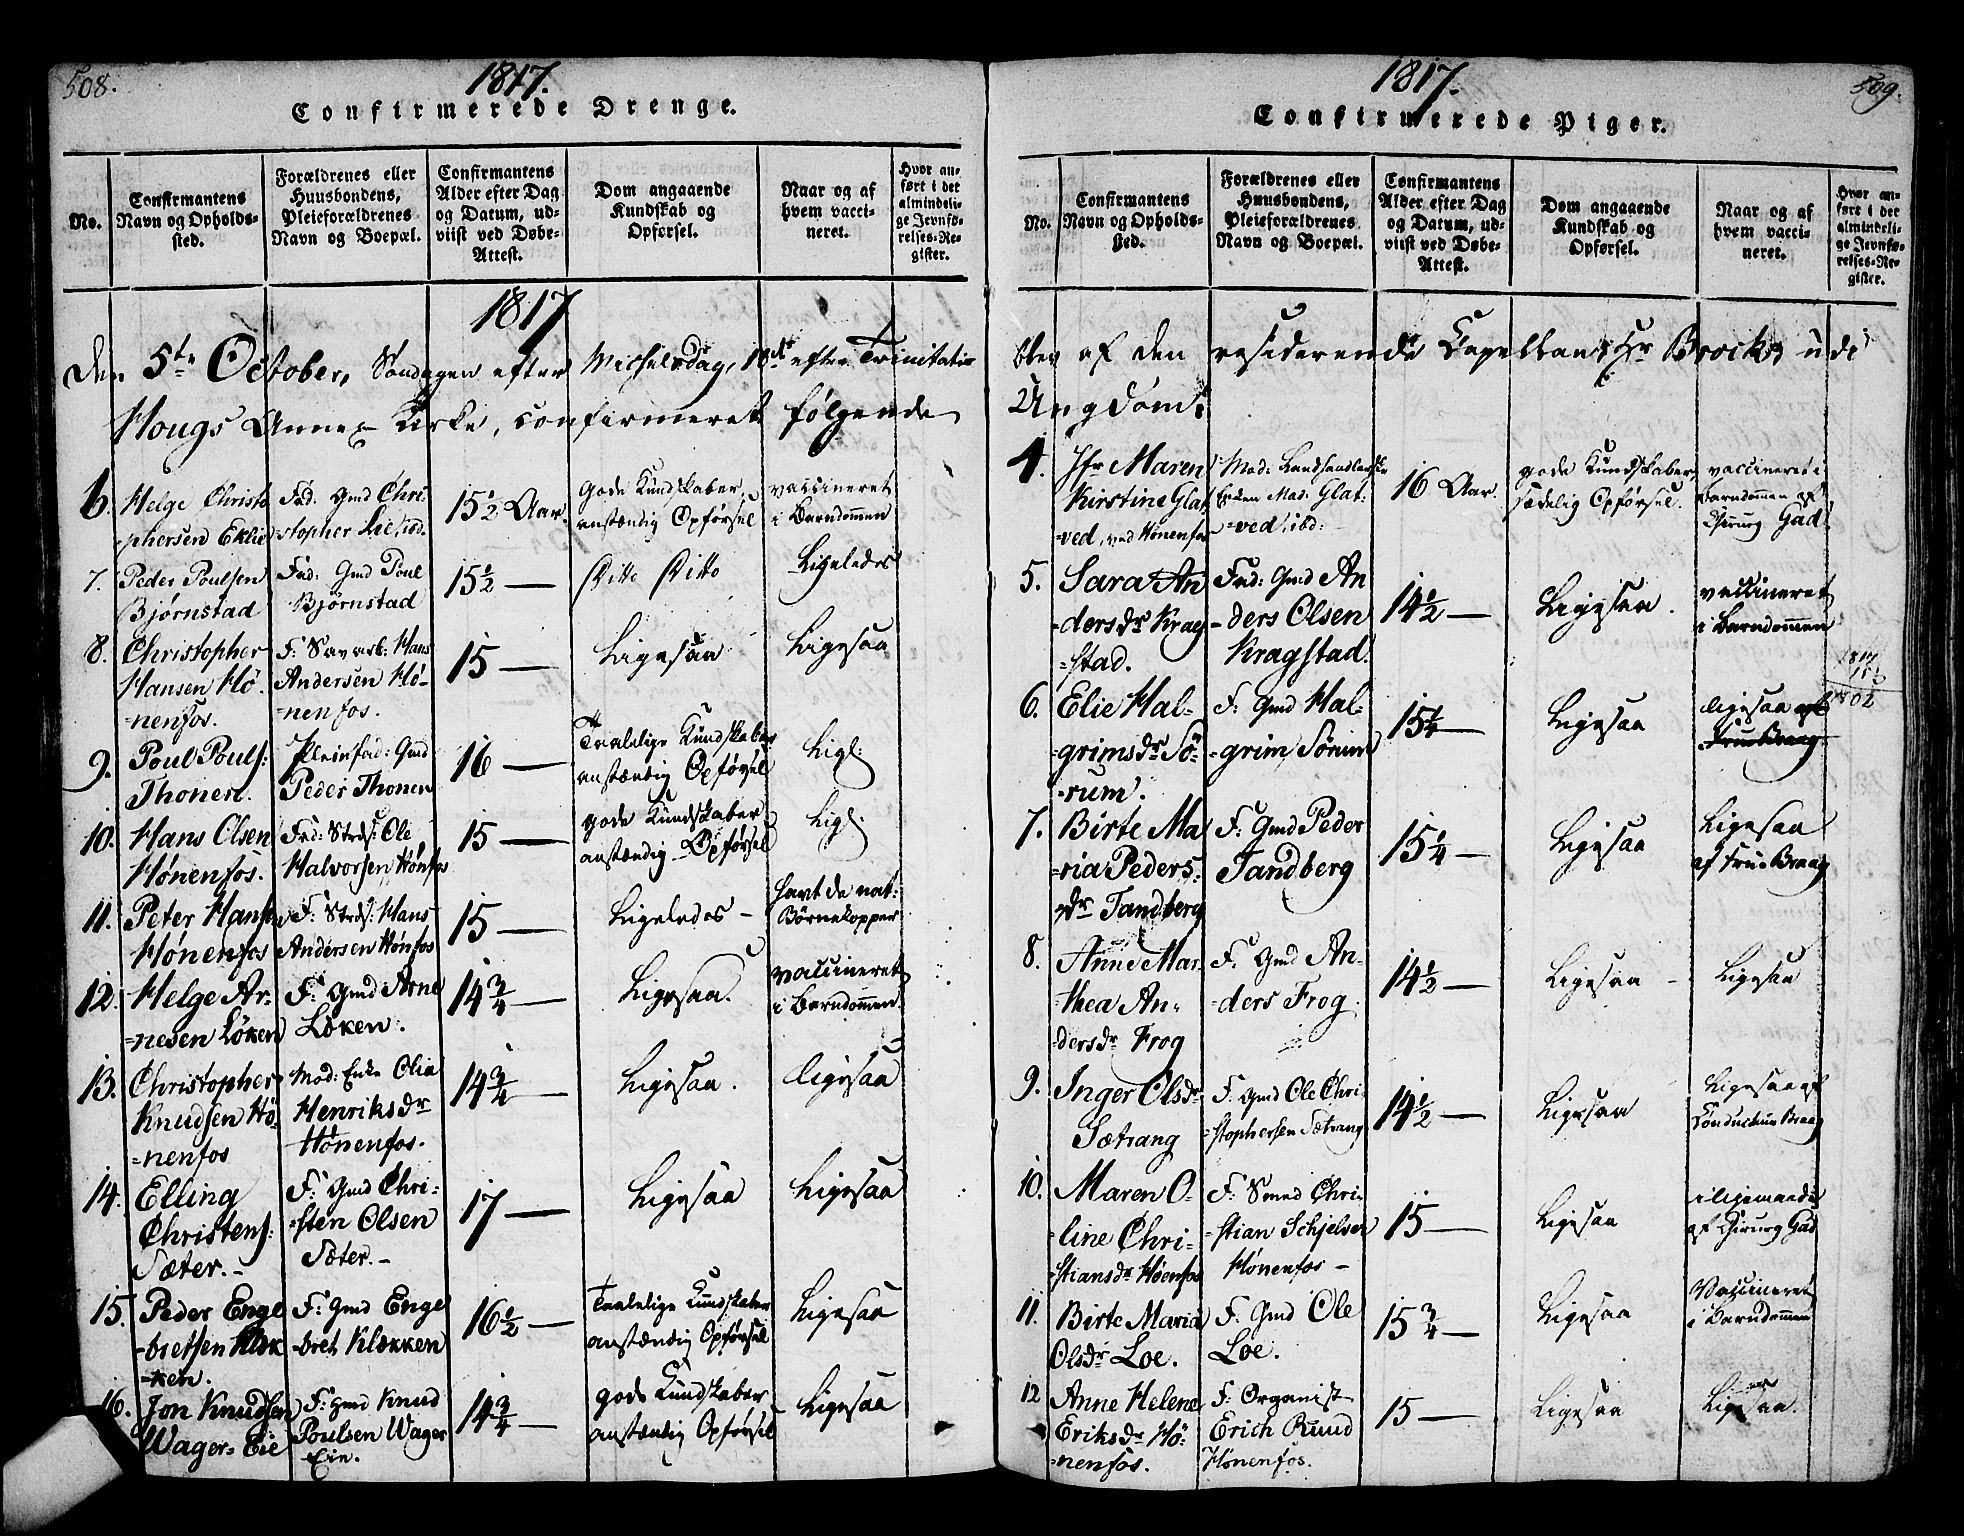 508.
1817.
Confirmerede Drenge.
No.
Confirmantens
Navn og Opholds-
sted.
Forældrenes eller
Huusbondens,
Pleieforældrenes
Navn og Boepæl.
Confirmantens
Alder efter Dag
og Datum, ud-
viist ved Døbe-
Attest.
Dom angaaende
Kundskab og
Opførsel.
Naar og af
hvem vacci-
neret.
Hvor an-
ført i det
almindeli-
ge Jevnfø-
relses-Re-
gister.
1817
Den 5te October, Søndagen efter Michelsdag, 18de efter Trinitatis
Hougs Annex Kirke, confirmeret følgende
6.
Helge Christo
phersen Eklie
Fad: Gmd Chri
stopher Lie,
15 1/2 Aar.
gode Kundskaber,
anstændig Opførsel
vaccineret
i Barndommen
7.
Peder Poulsen
Bjørnstad
Fad: Gmd Poul
Bjørnstad
15 1/2 —
Ditto Ditto
Ligeledes
8.
Christopher
Hansen Hø-
=nenfos.
F: Savarb: Hans
Andersen Hø-
=nenfos.
15 —
Ligesaa
Ligesaa
9.
Poul Pouls:
Thonen.
Pleiefad: Gmd
Peder Thonen
16 —
Taalelige Kundskaber
anstændig Opførsel
Ligl:
10.
Hans Olsen
Hønenfos.
Fad: Strds: Ole
Halvorsen Hønfos
15 —
gode Kundskaber
anstændig Opførsel
Ligl:
11.
Peter Hansen
Hønenfos
F: Strds: Hans
Andersen Hønfos
15 —
Ligeledes -
havt de nat:
Børnekopper
12.
Helge Ar-
=nesen Løken
F: Gmd Arne
Løken.
14 3/4 —
Ligesaa.
vaccineret
i Barndommen.
13.
Christopher
Knudsen Hø-
=nenfos
Mod: Enke Olia
Henriksdr
Hönenfos.
14 3/4 —
Ligesaa.
Ligesaa
14.
Elling
Christens:
Sæter. -
F: Gmd Chri-
=sten Olsen
Sæter. -
17 —
Ligesaa
Ligesaa
15.
Peder Enge
=bretsen Klæk
=ken.
F: Gmd Enge
=bret Klækken
16 1/2 —
Taalelige Kundskaber
anstændig Opførsel
Ligesaa
16.
Jon Knudsen
Wager=Eie
F: Hmd Knud
Poulsen Wager
Eie.
14 3/4 —
gode Kundskaber
anstændig Opførsel
Ligesaa
1817.
509.
Confirmerede Piger.
No.
Confirmantens
Navn og Opholds-
sted.
Forældrenes eller
Huusbondens,
Pleieforældrenes
Navn og Boepæl.
Confirmantens
Alder efter Dag
og Datum, ud-
viist ved Døbe-
Attest.
Dom angaaende
Kundskab og
Opførsel.
Naar og af
hvem vacci-
neret.
Hvor an-
ført i det
almindeli-
ge Jevnfø-
relses-Re-
gister.
blev af den residerende Capellan, Hr Brock, udi
Ungdom:
4.
Jfr Maren
Kirstine Glat
=ved, ved Hönenfos
Mod: Landhandlerske
Enken Mad. Glat.
=ved, ibd:
16 Aar.
gode Kundskaber,
sædelig Opførsel.
vaccineret i
Barndommen af
Chirurg Gad.
5.
Sara An
=dersdr Krag
=stad.
Fad: Gmd An
=ders Olsen
Kragstad.
14 1/2 —
Ligesaa.
vaccineret
i Barndommen
6.
Elie Hal-
=grimsdr Sö-
=rum.
F: Gmd Hal-
=grim Sörum
15 1/4 —
Ligesaa
ligesaa
1817
15
1802
7.
Birte Ma
=ria Peders:
=dr Tandberg
F: Gmd Peder
Tandberg
15 1/4 —
Ligesaa
Ligesaa
af Frue Braag
8.
Anne Mar-
thea An-
dersdr Frog
F: Gmd An-
=ders Frog.
14 1/2 —
Ligesaa -
Ligesaa
9.
Inger Olsdr
Sætrang
F: Gmd Ole Chri-
=stophersen Sætrang
14 1/2 —
Ligesaa
Ligesaa af
Conducteur Braag
10.
Maren O-
line Chri-
stiansdr Høenfos
F: Smed Chri-
=stian Schjelsen
Hönenfos -
15 —
Ligesaa
af Chirurg Gad
11.
Birte Maria
Olsdr Loe.
F: Gmd Ole
Loe.
15 3/4 —
Ligesaa
Vaccineret
i Barndommen
12
Anne Helene
Eriksdr Hø-
=nenfos.
F: Organist
Erich Ruud
Hönenfos.
15 —
Ligesaa
Ligesaa.